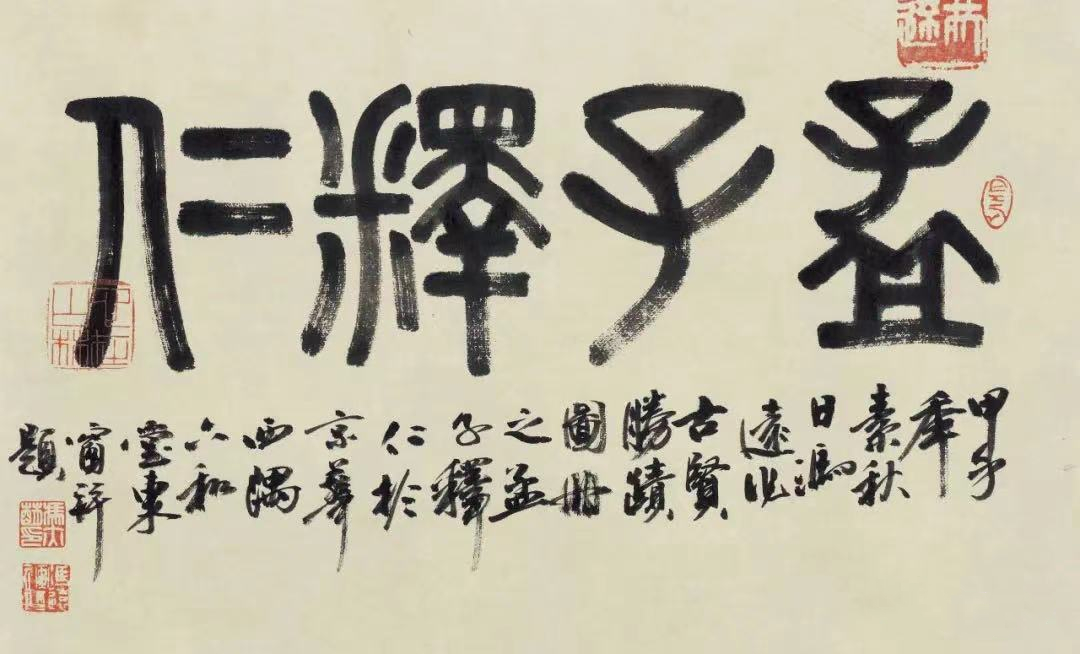 孟子釋仁
甲午
年
素秋
日馮
遠作
古賢
勝蹟
圖冊
之孟
子釋
仁於
京華
西隅
六和
堂東
窗并
題